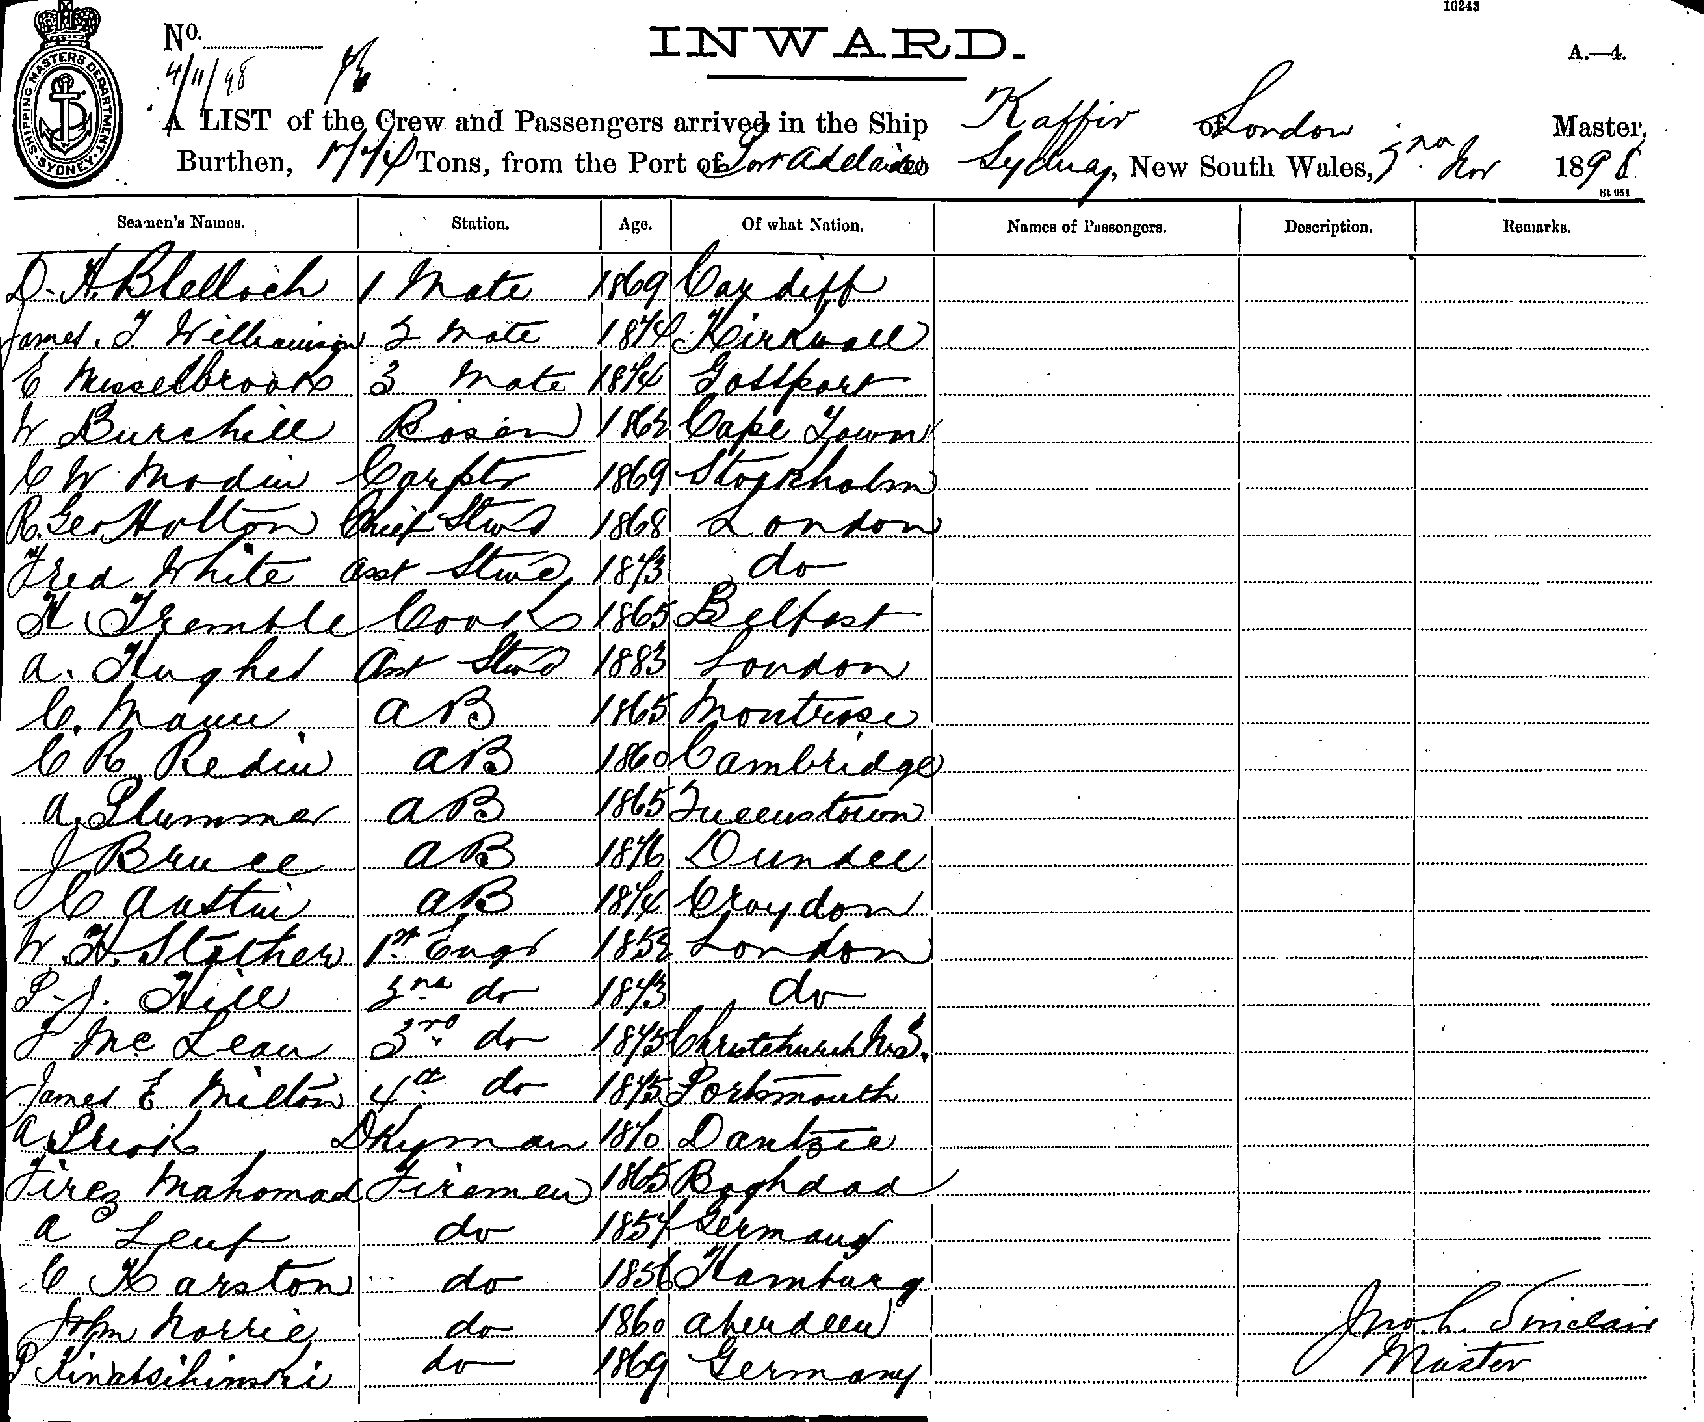 10243
INWARD.
A.—4.
No.
4/11/98
SHIPPING MASTERS DEPARTMENT SYDNEY
A LIST of the Crew and Passengers arrived in the Ship Kaffir of London Master,
Burthen, Tons, from the Port of Port Adelaide Sydney, New South Wales, Nov 1898
Seamen's Names. Station. Age. Of what Nation. Names of Passengers. Description. Remarks.
D. H. Blelloch 1 Mate 1869 Cardiff
James. T Williamson 2 Mate 1874 Kirkwall
E Misselbrook 3 Mate 1874 Gosport
W Burchill Bosen 1862 Cape Town
C W Modin Carptr 1869 Stockholm
R. Geo Holton Chief Stwd 1868 London
Fred White asst Stwd 1873 do
H Tremble Cook 1865 Belfast
A. Hughes Asst Stwd 1883 London
C. Mann AB 1865 Montrose
C R Redin AB 1860 Cambridge
A. Plummer AB 1865 Queenstown
J Bruce AB 1876 Dundee
C Austin AB 1874 Croydon
W. H. Stather 1st Engr 1852 London
P. J. Hill 2nd do 1873 do
J McLean 3rd do 1875 Christchurch N.Z.
James E Milton 4th do 1875 Portsmouth
A DKyman 1870 Dantzic
Firez Mahomad Firemen 1865 Baghdad
A Leut do 1854 Germany
C Karston do 1856 Hamburg
John Norrie do 1860 Aberdeen
P do 1869 Germany
Jno. L. Sinclair
Master